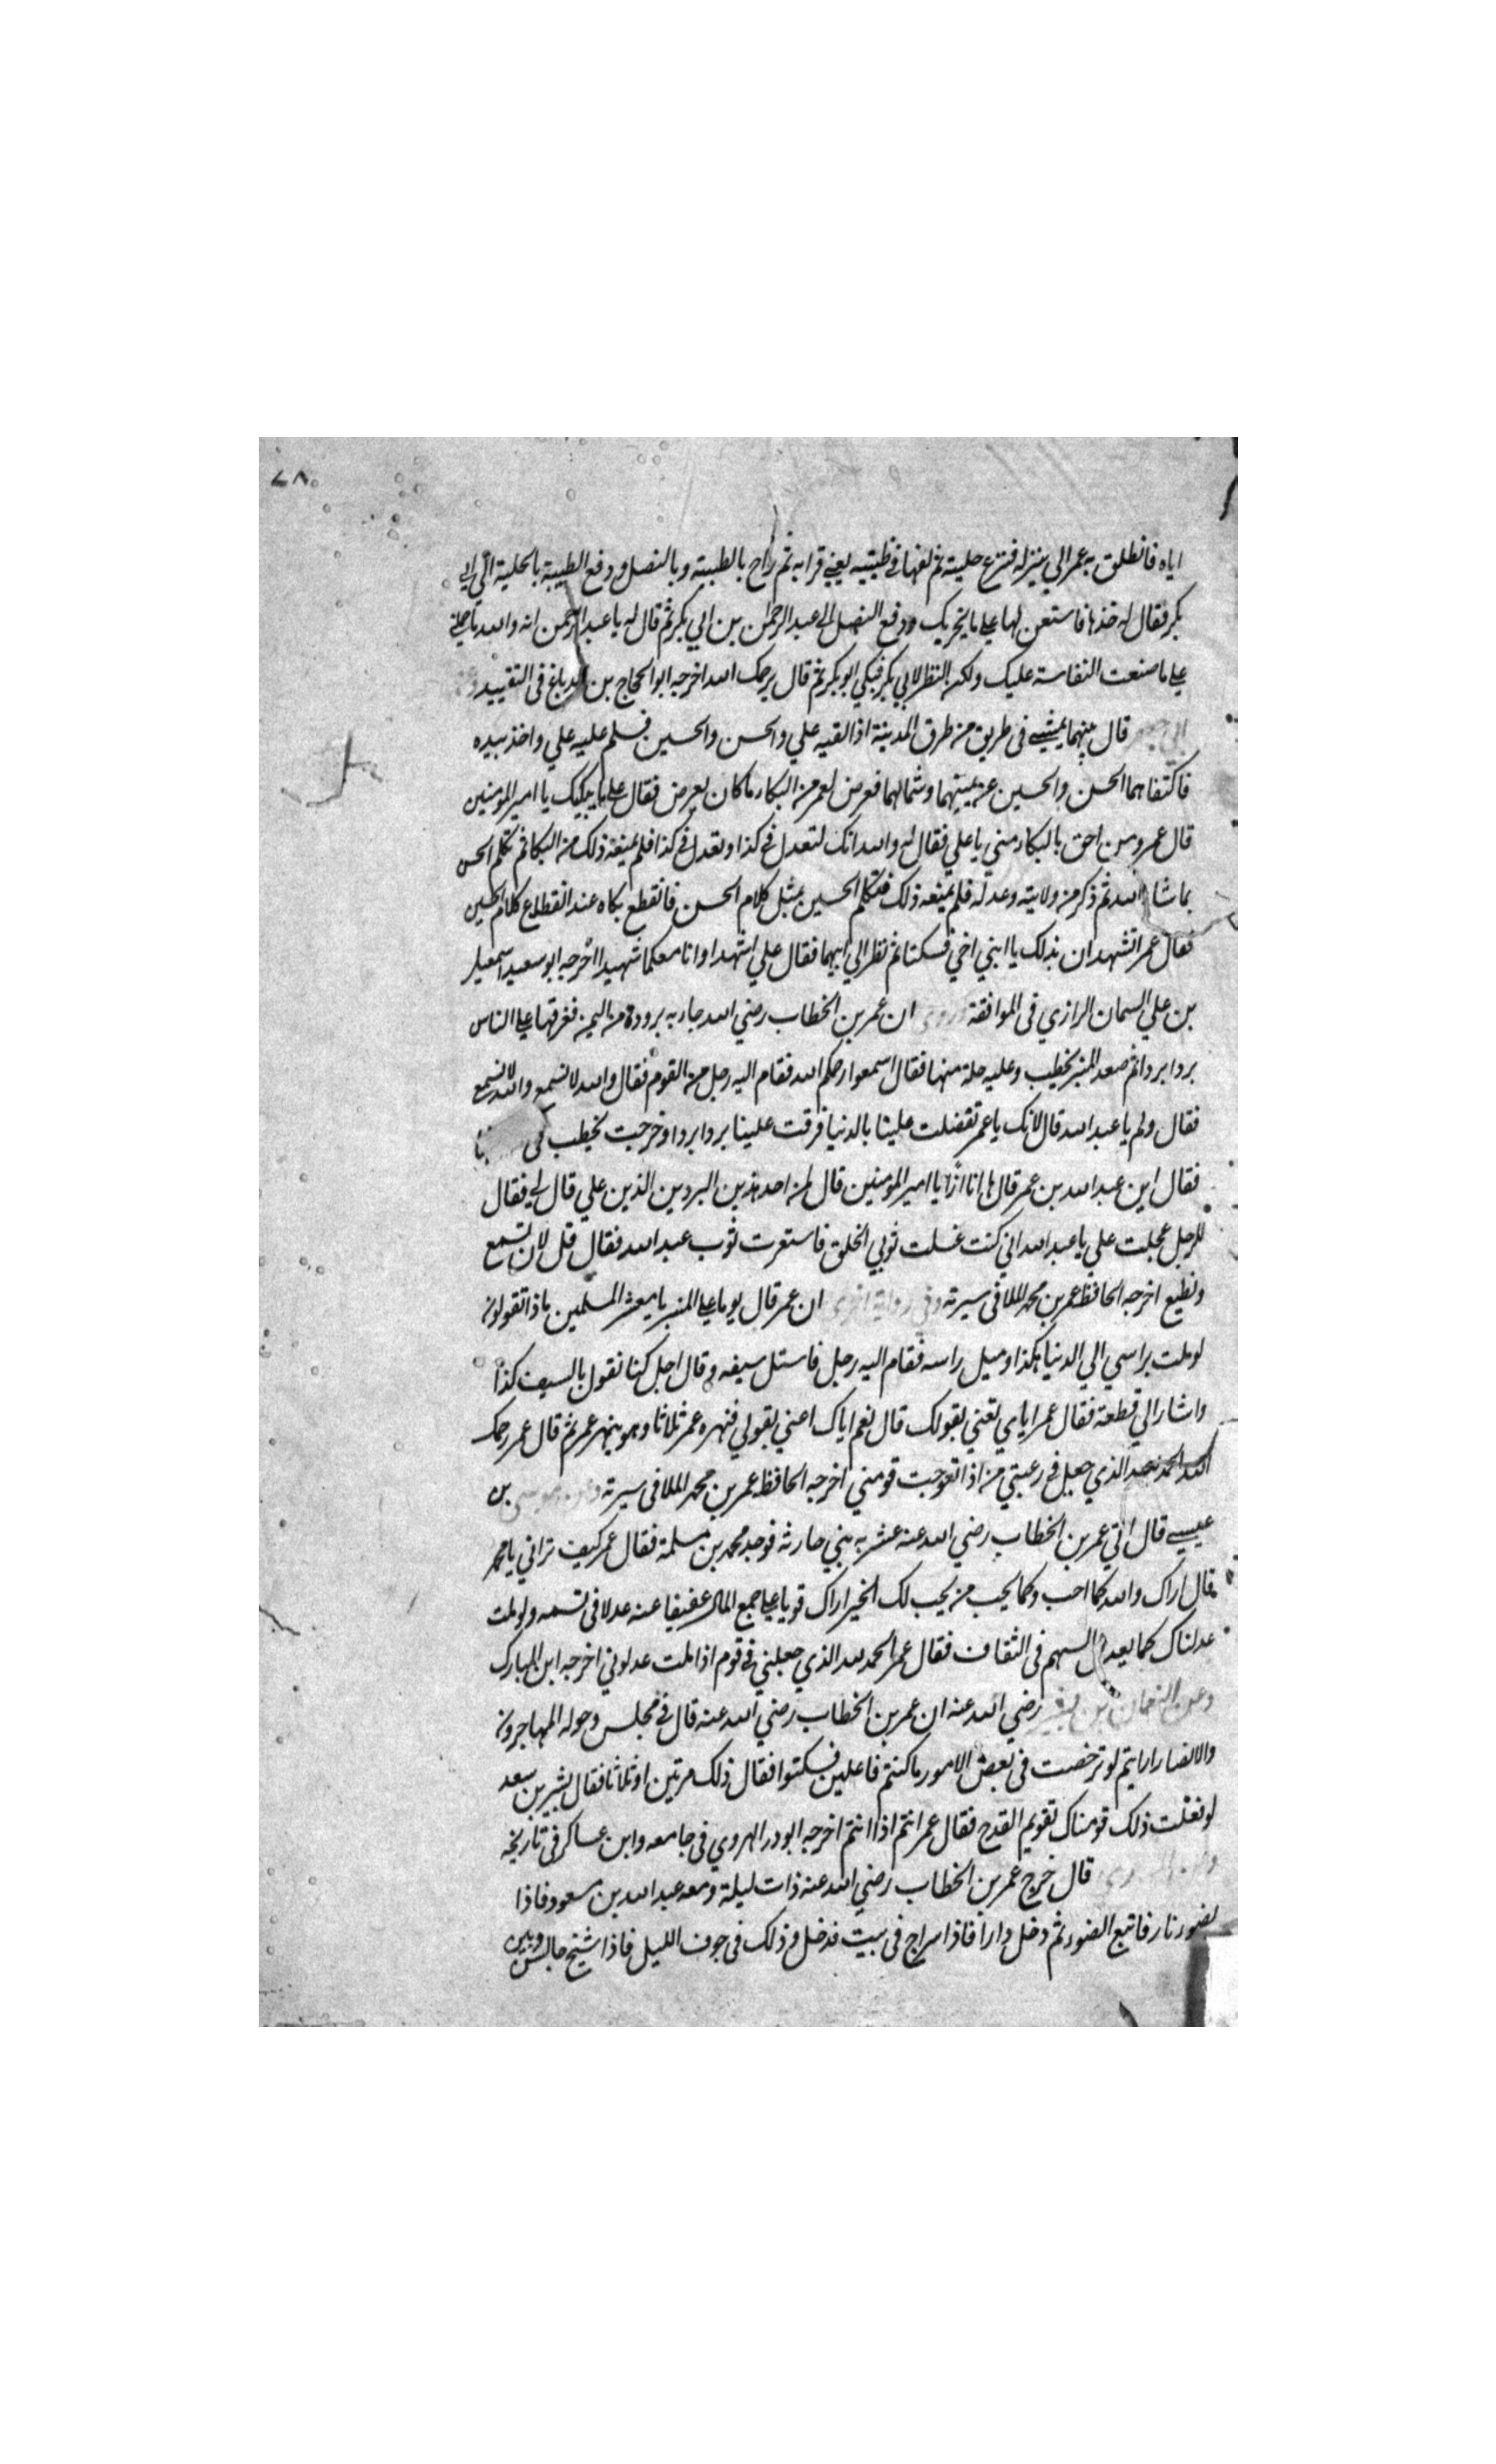 ٧٨
اياه فانطلق به عمر الي منزله فنزع حليته ثم لفها في ظبيته يعني قرابه ثم راح بالظبية وبالنصل ودفع الظبية بالحلية الي ابي
بكر فقال له خذها فاستعن لها علي ما يخزيك ودفع النصل الي عبد الرحمن بن ابي بكر ثم قال له يا عبد الرحمن انه والله ما حملني
علي ما صنعت النفاسة عليك ولكن النظر لابي بكر فبكي ابو بكر ثم قال يرحمك الله اخرجه ابو الحجاج بن الدباغ في التقييد
قال بينهما يمشي في طريق من طرق المدينة اذ القيه علي والحسن والحسين فسلم عليه علي واخذ بيده
فاكتفا هما الحسن والحسين عن يمينهما وشمالهما فعرض لعمر من البكاء ما كان يعرض فقال علي ما يبكيك يا امير المومنين
قال عمر ومن احق بالبكاء مني يا علي فقال له والله انك لتعدل في كذا وتعدل في كذا فلم يمنعه ذلك من البكا ثم تكلم الحسن
بما شا الله ثم ذكر من ولايته وعدله فلم يمنعه ذلك فتكلم الحسين بمثل كلام الحسن فانقطع بكاه عند انقطاع كلام الحسين
فقال عمر اتشهدان بذلك يا ابني اخي فسكتا ثم نظر الي ابيهما فقال علي اشهدا وانا معكما شهيد اخرجه ابو سعيد اسمعيل
بن علي السمان الرازي في الموافقة وروي ان عمر بن الخطاب رضي الله جاءبه برودة من اليمن ففرقها علي الناس
بردا بردا ثم صعد المنبر يخطب وعليه حلة منها فقال اسمعوا رحكم الله فقام اليه رجل من القوم فقال والله لا نسمع والله لا نسمع
فقال ولم يا عبد الله قال لانك يا عمر تفضلت علينا بالدنيا فرقت علينا بردا بردا وخرجت تخطب في
فقال اين عبد الله بن عمر قال ها انا ذا يا امير المومنين قال لمن احد هذين البردين الذين علي قال لي فقال
للرجل عجلت علي يا عبد الله اني كنت غسلت ثوبي الخلق فاستعرت ثوب عبد الله فقال قل لان نسمع
ونطيع اخرجه الحافظ عمر بن محمد الملا في سيرته وفي رواية اخري ان عمر قال يوما علي المنبر يا معشر المسلمين ماذا تقولون
لو ملت براسي الي الدنيا هكذا وميل راسه فقام اليه رجل فاستل سيفه وقال اجل كنا نقول بالسيف كذا
واشار الي قطعة فقال عمر اياي تعني بقولك قال نعم اياك اعني بقولي فنهره عمر ثلاثا وهو ينهر عمر ثم قال عمر رحمك
الله الحمد لله الذي جعل في رعيتي من اذا تعوجت قومني اخرجه الحافظ عمر بن محمد الملا في سيرته وعن موسي بن
عيسي قال اتي عمر بن الخطاب رضي الله عنه عشربه بني حارثه فوجد محمد بن مسلمة فقال عمر كيف تراني يا محمد
قال اراك والله كما احب وكما يحب من يحب لك الخير اراك قويا علي جمع المال عفيفا عنه عدلا في قسمه ولو ملت
عدلناك كما يعدل السهم في الثقاف فقال عمر الحمد لله الذي جعلني في قوم اذا ملت عدلوني اخرجه ابن المبارك
وعن النعمان بن بشير رضي الله عنه ان عمر بن الخطاب رضي الله عنه قال في مجلس وحوله المهاجرون
والانصار ارايتم لو ترخصت في بعض الامور ما كنتم فاعلين فسكتوا فقال ذلك مرتين او ثلاثا فقال بشير بن سعد
لو فعلت ذلك قومناك تقويم القدح فقال عمر انتم اذا انتم اخرجه ابو ذر الهروي في جامعه وابن عساكر في تاريخه
قال خرج عمر بن الخطاب رضي الله عنه ذات ليلة ومعه عبد الله بن مسعود فاذا
بضوء نار فاتبع الضوء ثم دخل دارا فاذا سراج في بيت فدخل وذلك في جوف الليل فاذا شيخ جالس وبين